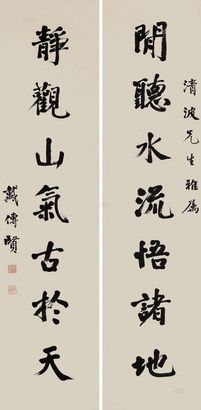 清波先生雅属
閒聽水流悟諸地
靜觀山氣古於天
戴傳賢